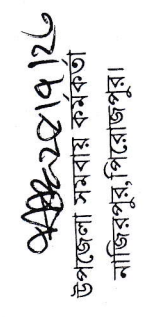 ২৫/৭/২৮
উপজেলা সমবায় কর্মকর্তা
নাজিরপুর,পিরোজপুর।